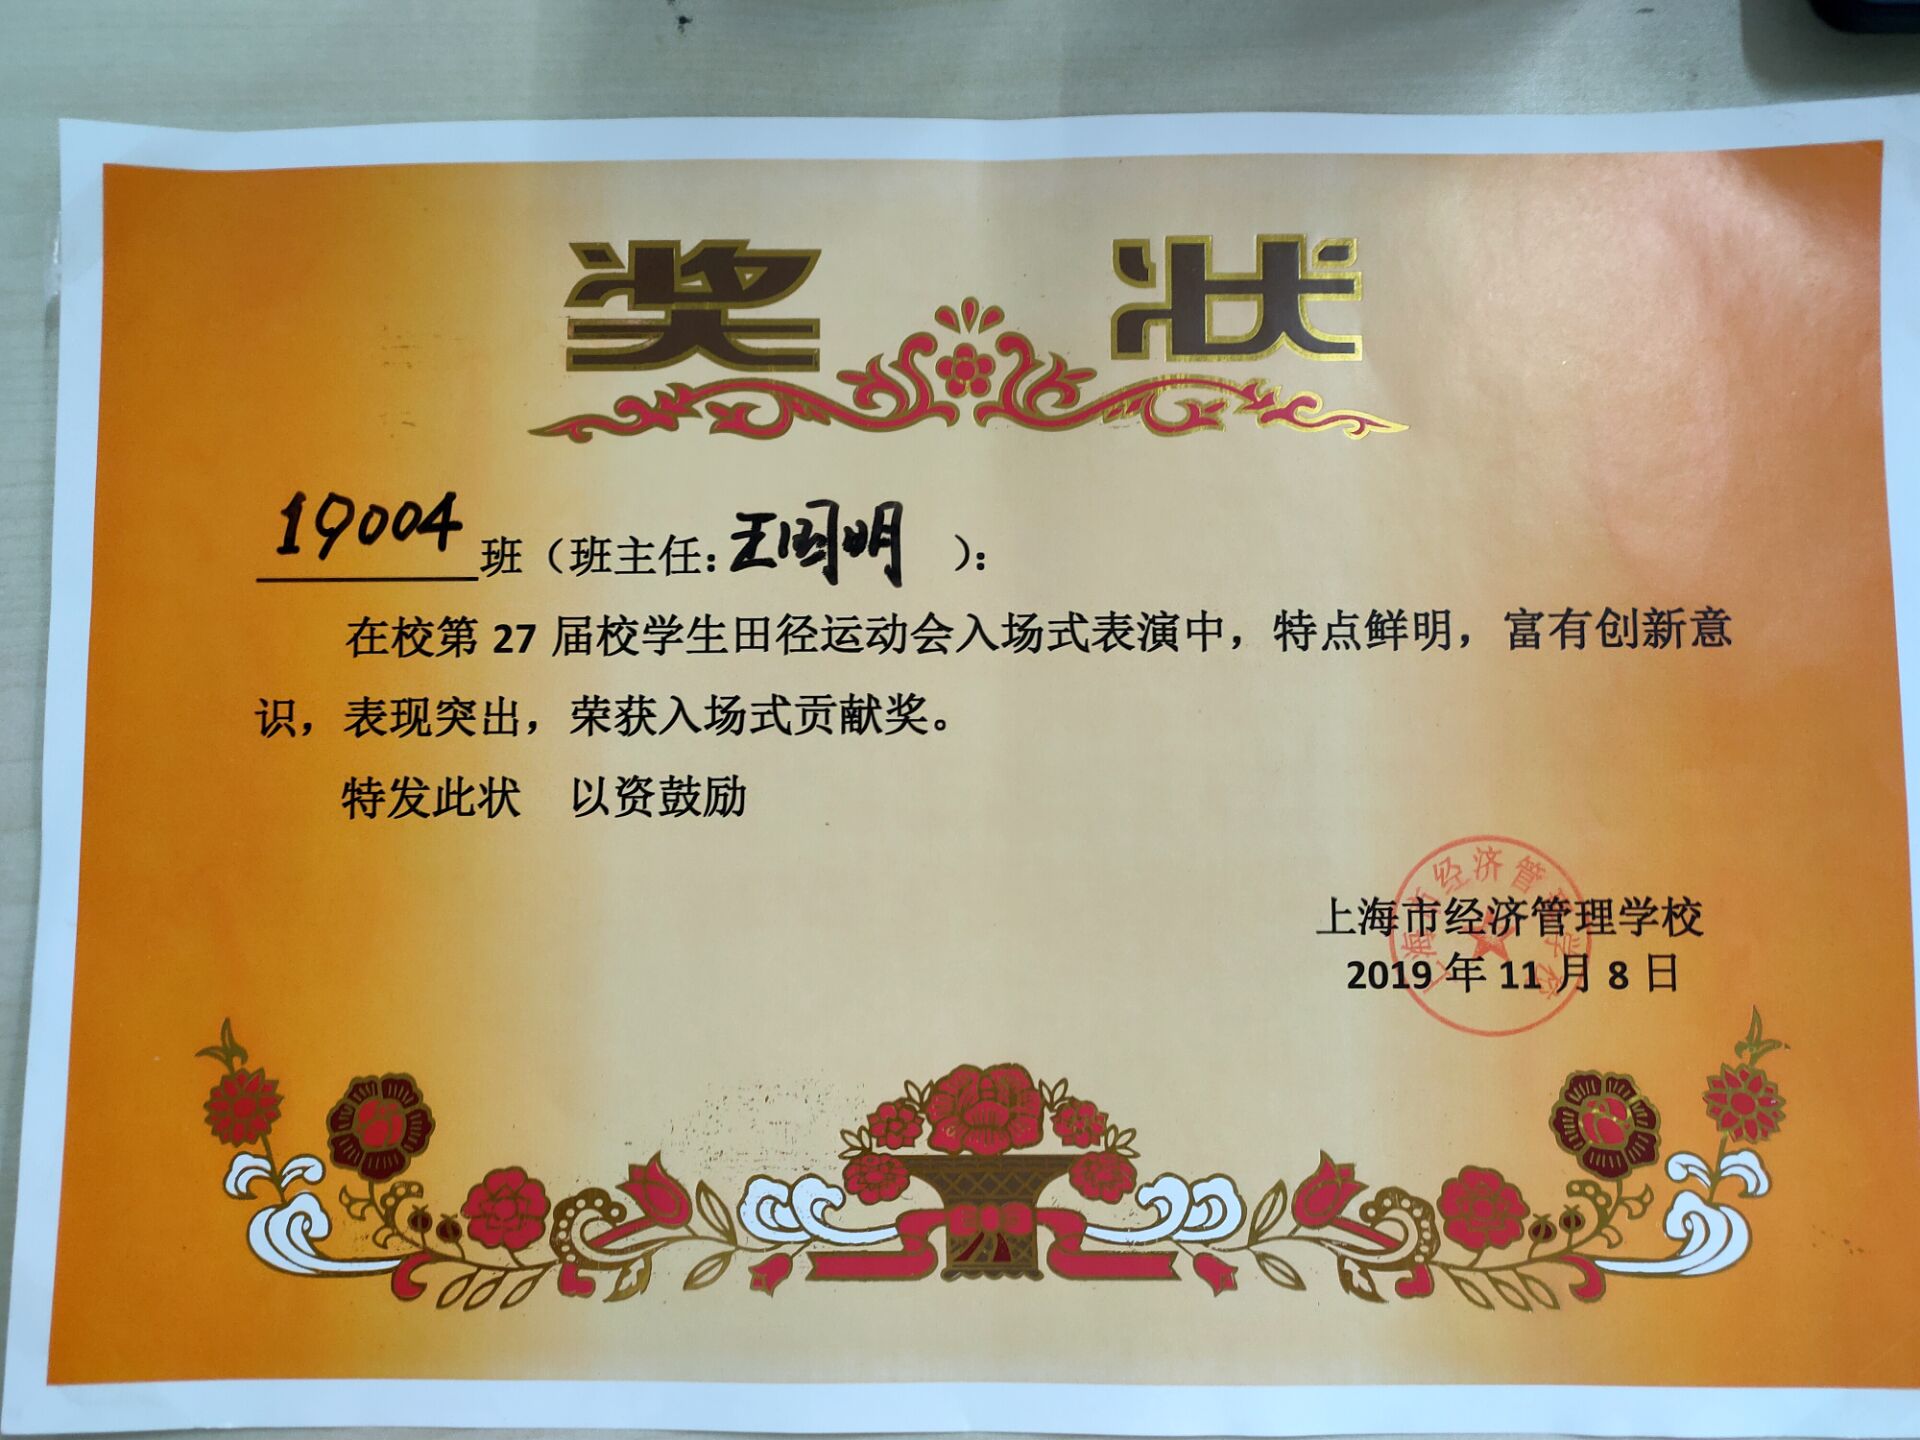 奖 状
19004班（班主任：王国明 ）：
在校第 27 届校学生田径运动会入场式表演中，特点鲜明，富有创新意
识，表现突出，荣获入场式贡献奖。
特发此状 以资鼓励
上海市经济管理学校
上海市经济管理学校
2019 年 11 月 8 日